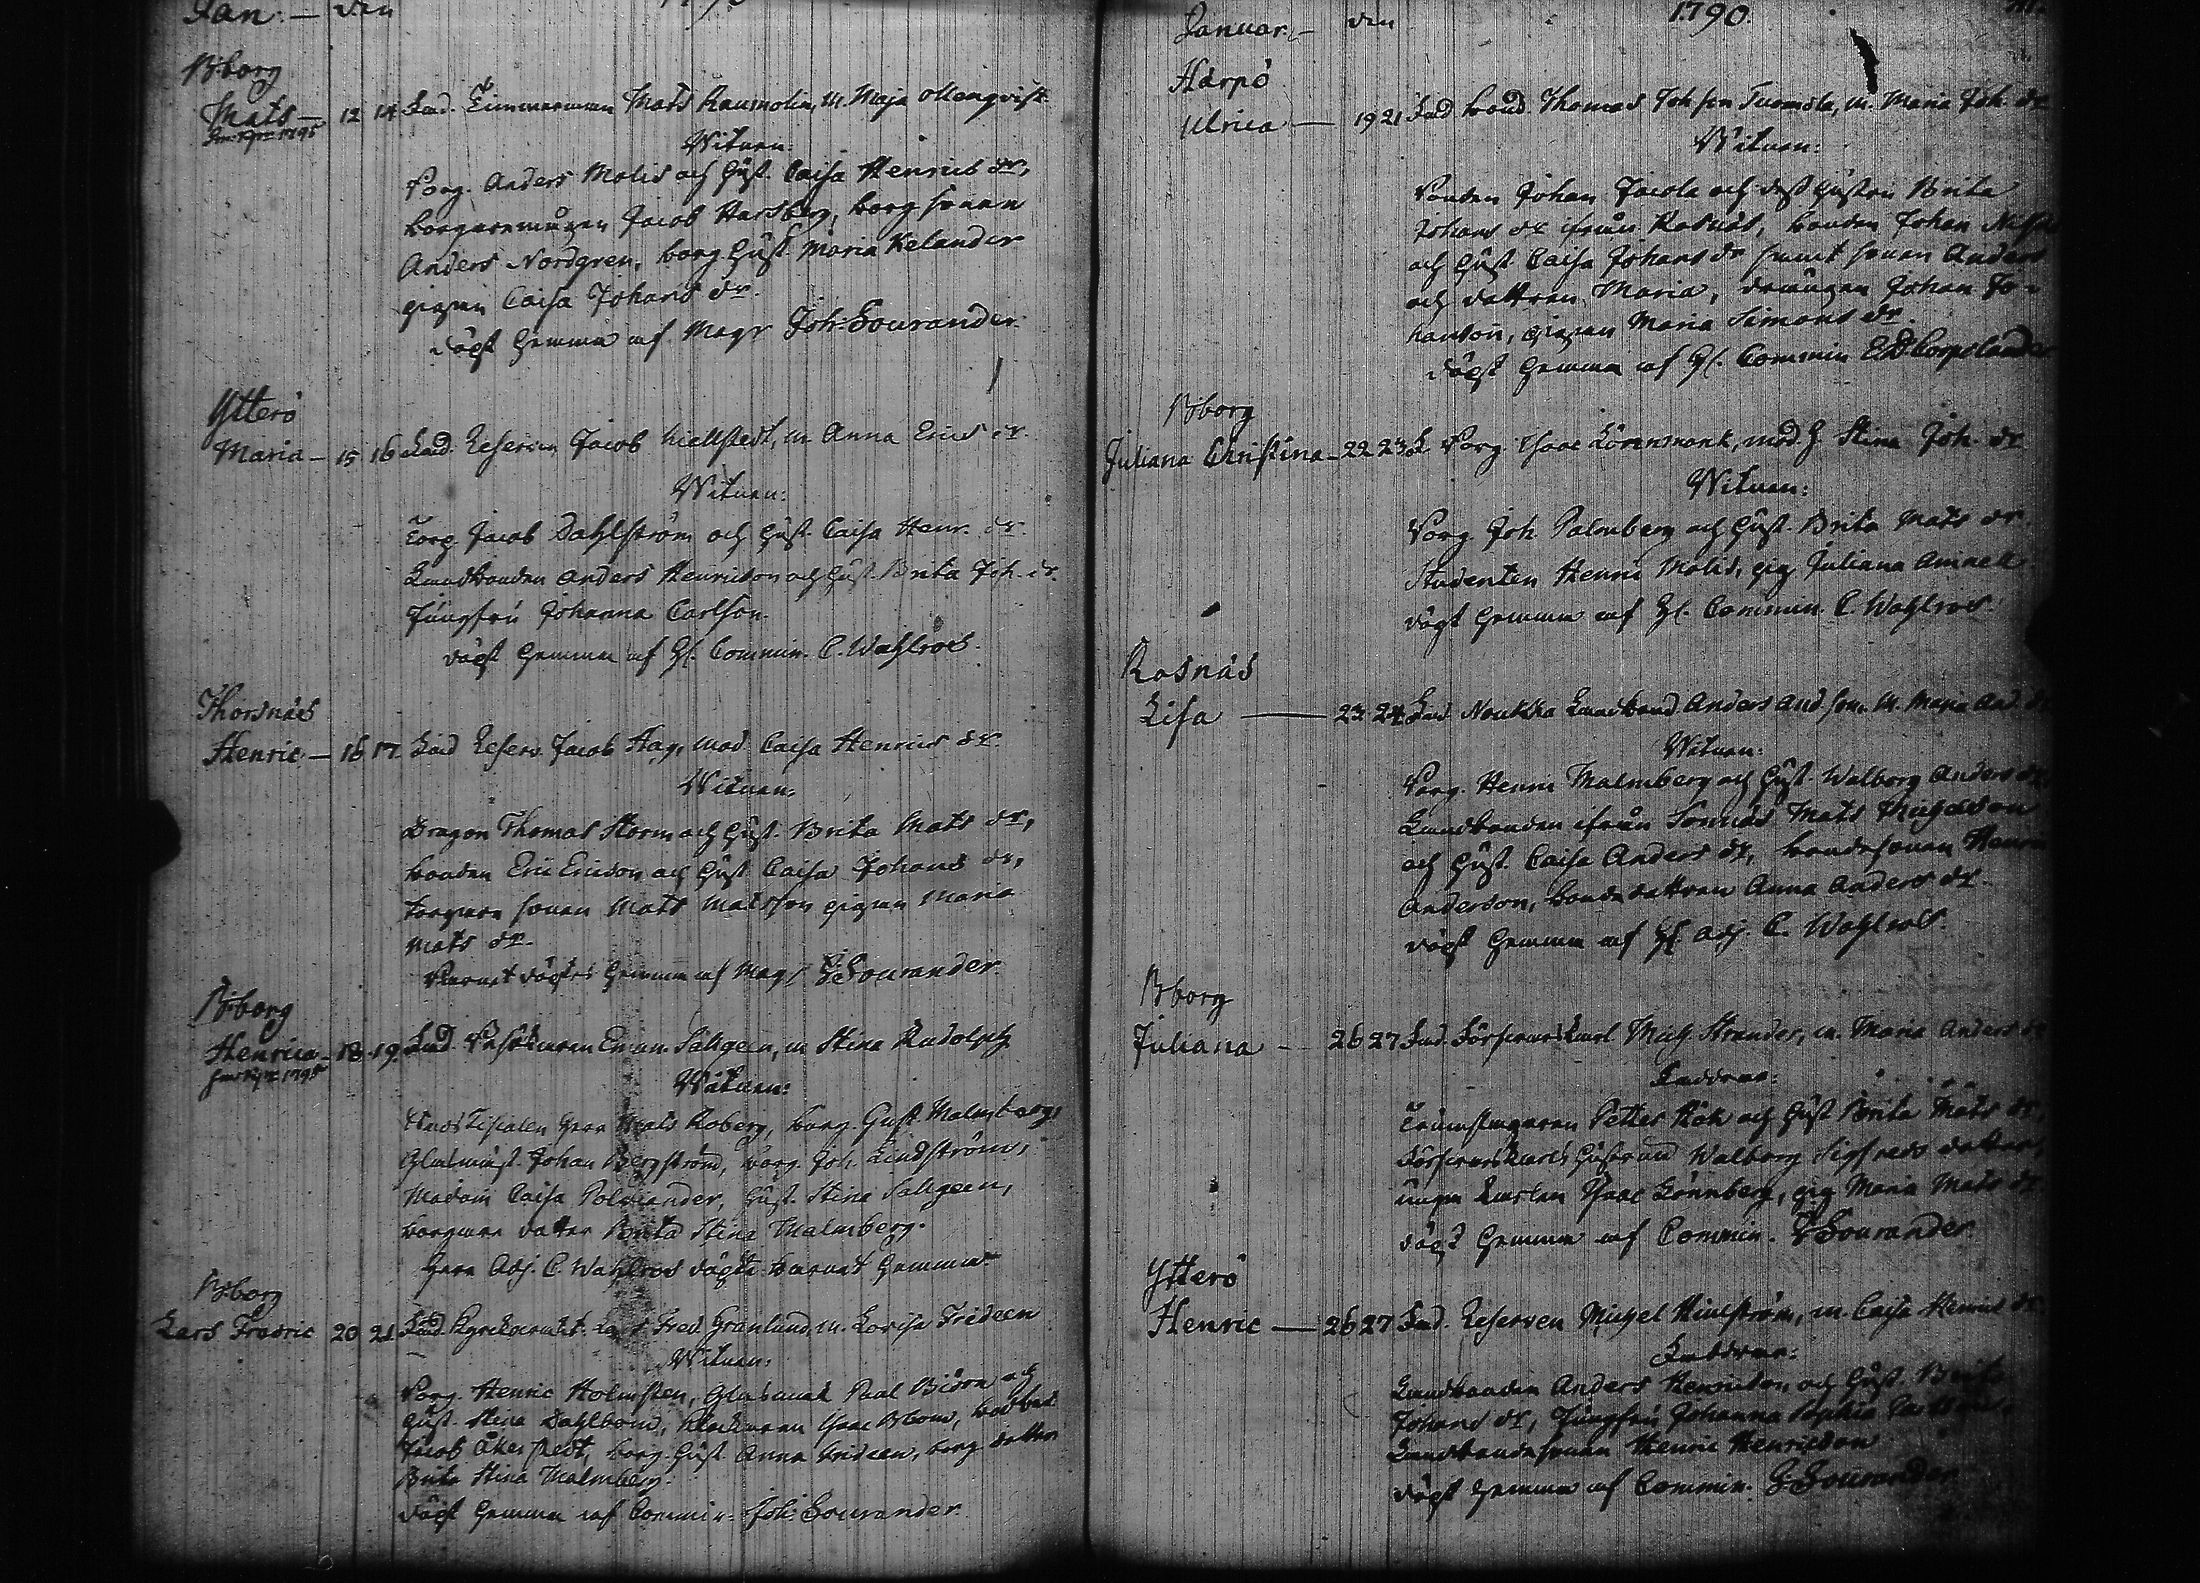 Jan. — den
Bborg
Mats — 12 14 Lad. Timmerman Mats Raumolin, M. Maja Mengvist
Witnen:
Borg. Anders Molis och Hust. Caisa Henrics dr,
borgaredrängen Jacob Harsberg, borg sonen
Anders Nordgren, borg Hust Maria Kelander
pigan Caisa Johans dr.
döpt hemma af Mag Joh: Sourander
Ytterö
Maria — 15 16 Lad. Reserven Jacob Hiellstedt, M Anna Erics dr.
Witnen:
Torp. Jacob Dahlström och Hust. Caisa Henr. dr.
Landbonden Anders Henricson och Hust. Brita Joh. dr.
Jungfru Johanna Carlson.
döpt hemma af H. Commin. C. Wahlroos.
Thorsnäs
Henric — 16 17 Lad Reserv. Jacob Hag, mod. Caisa Henrics dr.
Witnen:
Dragon Thomas Storm och Hust. Brita Mats dr,
bonden Eric Ericson och Hust Caisa Johans dr,
torpare sonen Mats Matsson pigan Maria
Mats dr.
Barnet döptes hemma af Mag. Sourander
Bborg
Henrica — 18 19 Lad. Eman. Saligeen, m Stina Rudolph
Witnen:
Herr Mats Roberg, borg. Gust. Malmberg,
Glasmäst. Johan Bergström, borg. Joh. Lindström,
Madam Caisa Polviander, Hust. Stina Saligeen,
borgare dotter Brita Stina Malmberg.
Herr Adj. C. Wahlroos döpte barnet hemma
Bborg
Lars Fredric 20 21 Lad. Lars Fred. Granlund, m. Lovisa Trideen
Witnen:
Borg. Henric Holmsten, Glasmäst Paul Biörn och
Hust. Stina Dahlbom, Klockaren Isac Bbom,
Jacob Åkerstedt, borg. Hust Anna Trideen, borg dotter
Brita Stina Malmberg.
döpt hemma af Commin. Joh: Sourander.
Januar. — den 1790.
Härpö
Ulrica — 19 21 Lad bond. Thomas Joh son Tuomola, m. Maria Joh. dr
Witnen:
Bonden Johan Jacola och dess Hustru Brita
Johans dr ifrån Rosnäs, bonden Johan
och Hust Caisa Johans dr samt sonen Anders
och dottren Maria, drängen Johan Jo-
hanson, pigan Maria Simons dr.
döpt hemma af H. Commin E. D. Corpolander
Bborg
Juliana Christina — 22 23 L Borg. Isaac Lönmark, mod. H. Stina Joh. dr
Witnen:
Borg. Joh. Palmberg och Hust. Brita Mats dr
Studenten Henric Molis, pig Juliana Amnell
döpt hemma af H. Commin C. Wahlroos.
Rosnäs
Lisa — 23 24 Lad Noukka Landbond Anders And son. M. Maria And. dr
Witnen:
Borg. Henric Malmberg och Hust. Walborg Anders dr
Landbonden ifrån Sonnäs Mats Michelson
och Hust. Caisa Anders dr, bondesonen Henric
Anderson, bondedottren Anna Anders dr.
döpt hemma af H. Adj. C. Wahlroos.
Bborg
Juliana — 26 27 Lad. Försvarskarl Mich. Strander, m. Maria Anders dr
Faddrar:
Petter Hök och Hust Brita Mats dr,
Försvarskarls Hustrun Walborg Sigfreds dotter,
unga karlen Isaac Lönnberg, pig Maria Mats dr
döpt hemma af Commin. Sourander
Ytterö
Henric — 26 27 Lad. Reserven Michel Hielström, m. Caisa Henrics dr
Faddrar:
Landbonden Anders Henricson och Hust. Brita
Johans dr, Jungfru Johanna Sophia Carlson,
Landbondesonen Henric Henricson
döpt hemma af Commin. Sourander